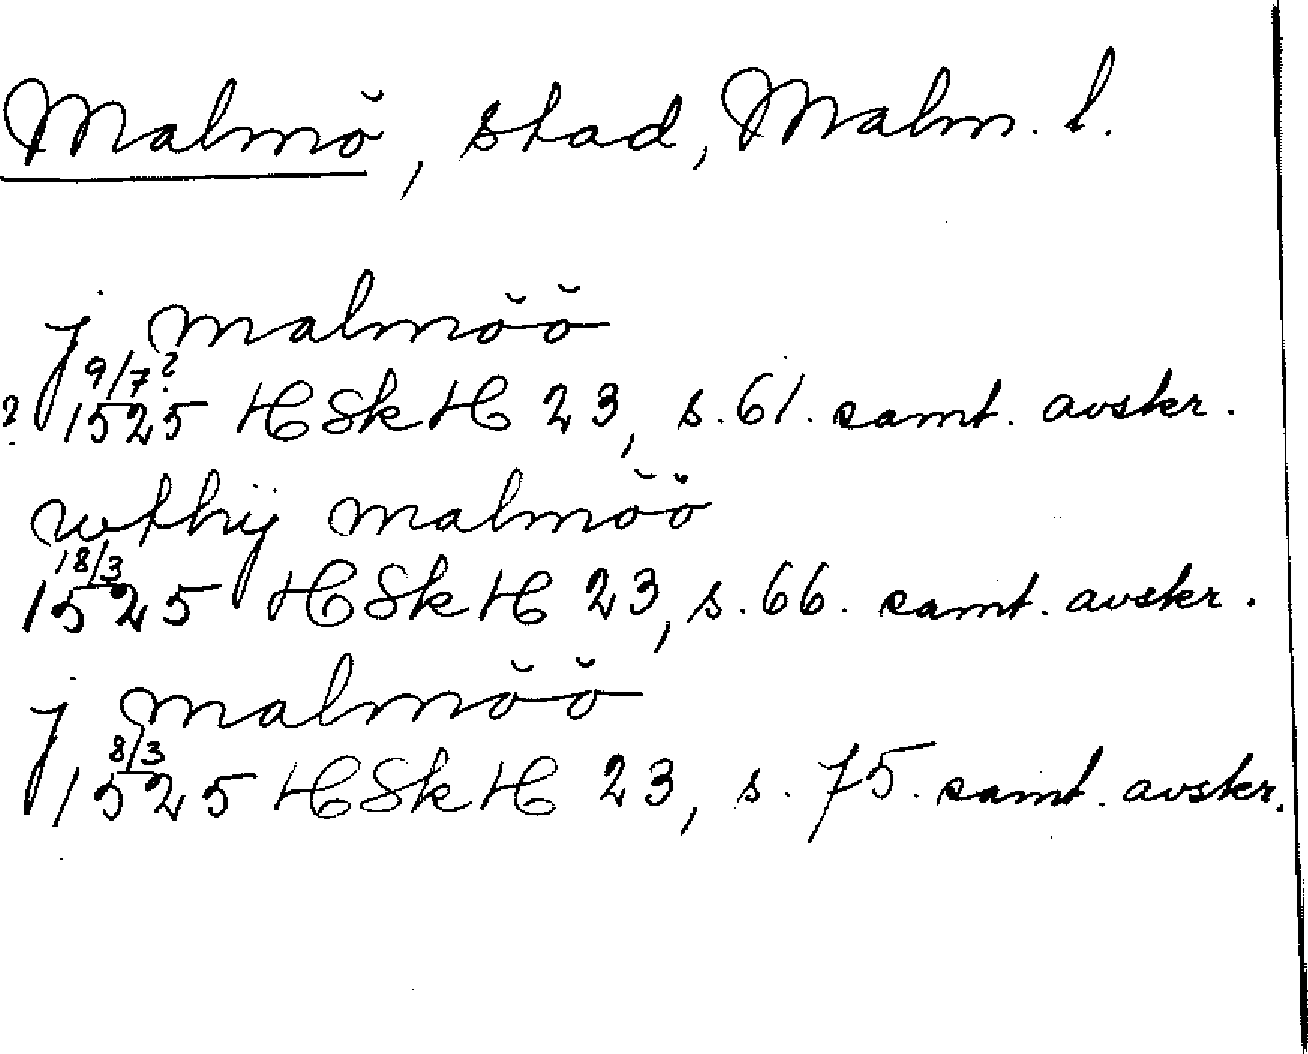 Malmö, stad, Malm. l.
j malmöö
9/7?
? 1525 HSkH 23, s. 61. samt. avskr.
wthij malmöö
18/3
1525 HSkH 23, s. 66. samt. avskr.
j malmöö
8/3
1525 HSkH 23, s. 75. samt. avskr.